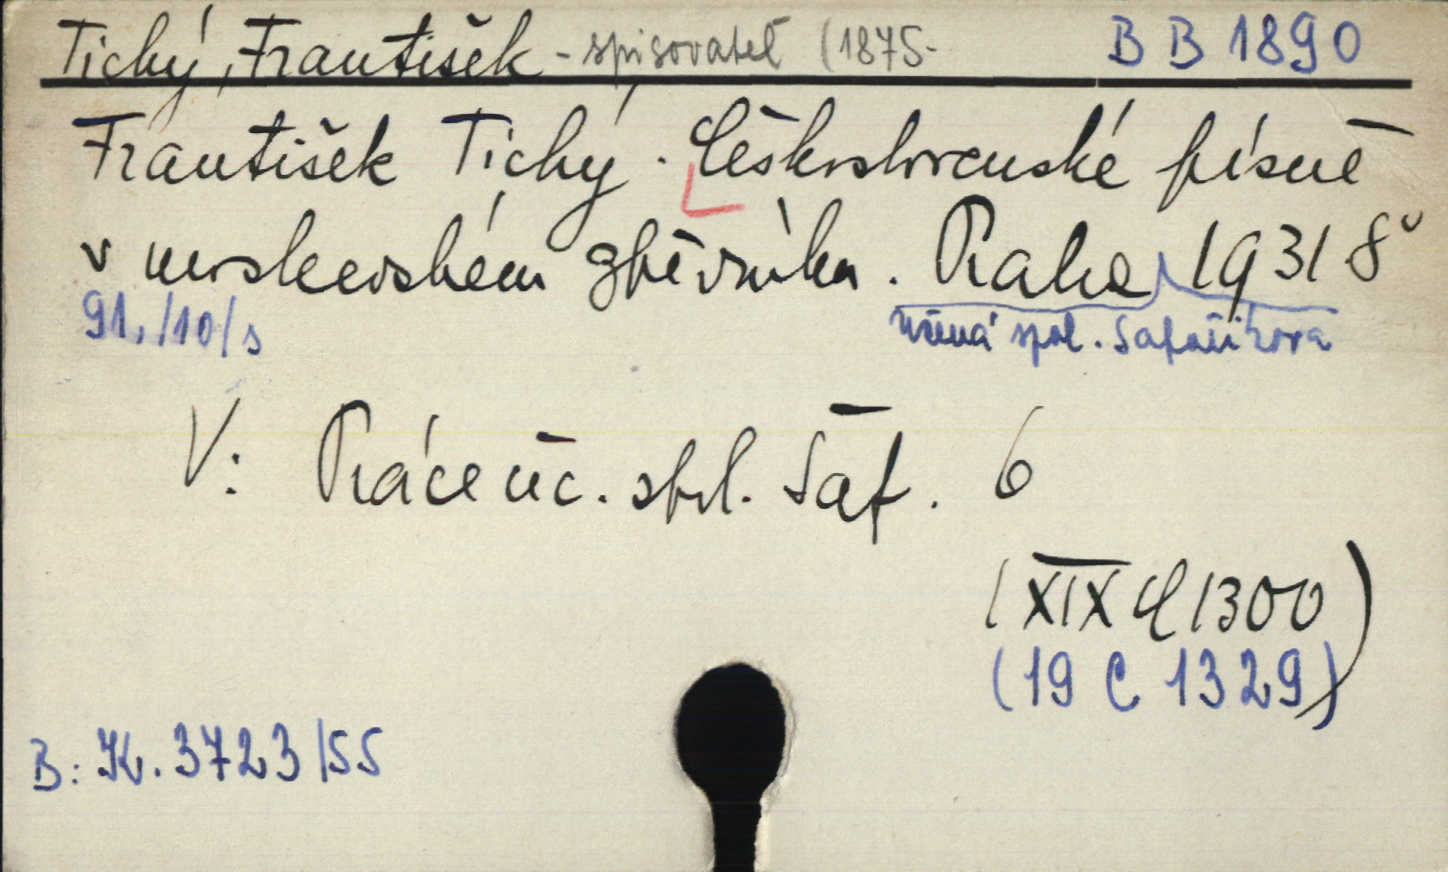 Tichý, František - spisovatel (1875- BB 1890
František Tichý. Československé písně
v moskevském zpěvníku. Praha 1931 8°
91./10/s učená spol. Šafaříkova
V: Práce uč. spol. Šaf. 6
(XIX C 1300)
(19 C 1329)
B: K. 3723/55